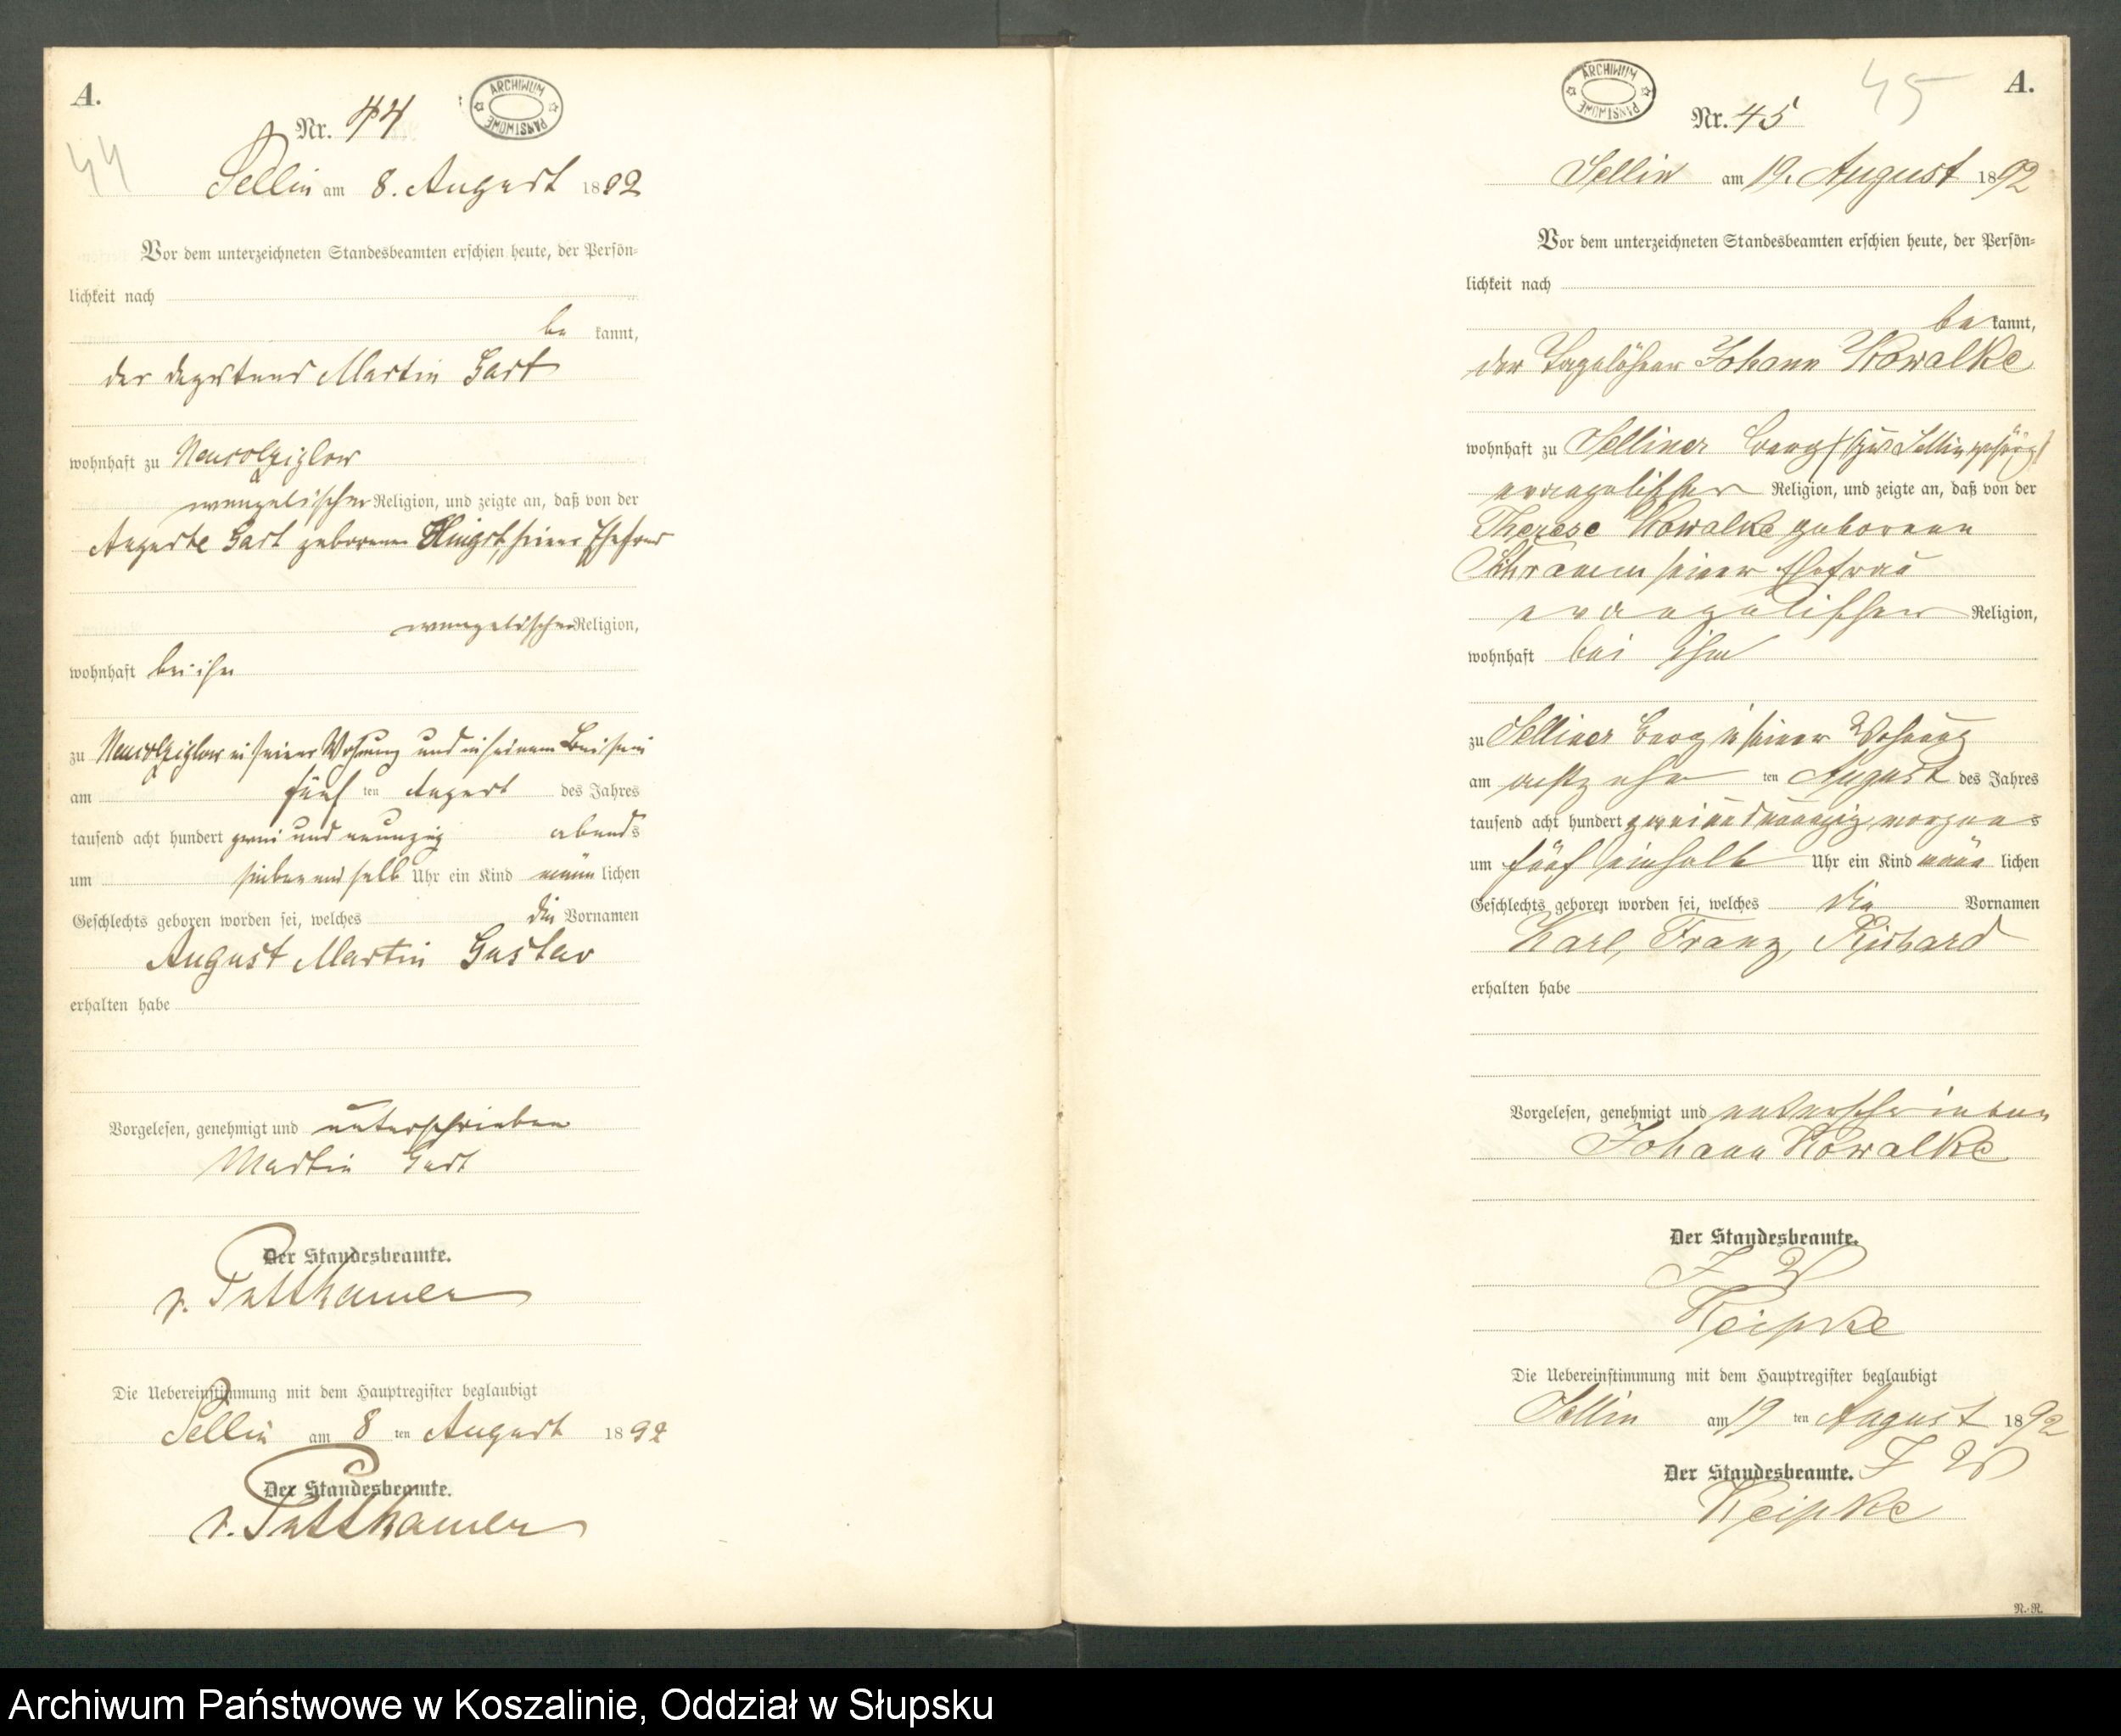 A.
ARCHIWUM PAŃSTWOWE
Nr. 44
44
Sellin am 8. August 1892
Vor dem unterzeichneten Standesbeamten erschien heute, der Persön-
lichkeit nach
be kannt,
der Deputant Martin Gast
wohnhaft zu Neukolziglow
evangelischer Religion, und zeigte an, daß von der
Auguste Gast geborenen Hingst, seiner Ehefrau
evangelischer Religion,
wohnhaft bei ihm
zu Neukolziglow in seiner Wohnung und in seinem Beisein
am fünf ten August des Jahres
tausend acht hundert zwei und neunzig abends
um sieben und halb Uhr ein Kind männ lichen
Geschlechts geboren worden sei, welches die Vornamen
August Martin Gustav
erhalten habe
Vorgelesen, genehmigt und unterschrieben
Martin Gast
Der Standesbeamte.
v. Puttkamer
Die Uebereinstimmung mit dem Hauptregister beglaubigt
Sellin am 8 ten August 1892
Der Standesbeamte.
v. Puttkamer
ARCHIWUM PAŃSTWOWE
45
A.
Nr. 45
Sellin am 19. August 1892
Vor dem unterzeichneten Standesbeamten erschien heute, der Persön-
lichkeit nach
be kannt,
der Tagelöhner Johann Kowalke
wohnhaft zu Selliner Berg (zu Sellin gehörig)
evangelischer Religion, und zeigte an, daß von der
Therese Kowalke geborene
Schramm seiner Ehefrau
evangelischer Religion,
wohnhaft bei ihm
zu Selliner Berg in seiner Wohnung
am achtzehn ten August des Jahres
tausend acht hundert zweiundneunzig morgens
um fünf einhalb Uhr ein Kind männ lichen
Geschlechts geboren worden sei, welches die Vornamen
Karl, Franz, Richard
erhalten habe
Vorgelesen, genehmigt und unterschrieben
Johann Kowalke
Der Standesbeamte.
I V
Reipke
Die Uebereinstimmung mit dem Hauptregister beglaubigt
Sellin am 19 ten August 1892
Der Standesbeamte. I V
Reipke
N.-R.
Archiwum Państwowe w Koszalinie, Oddział w Słupsku